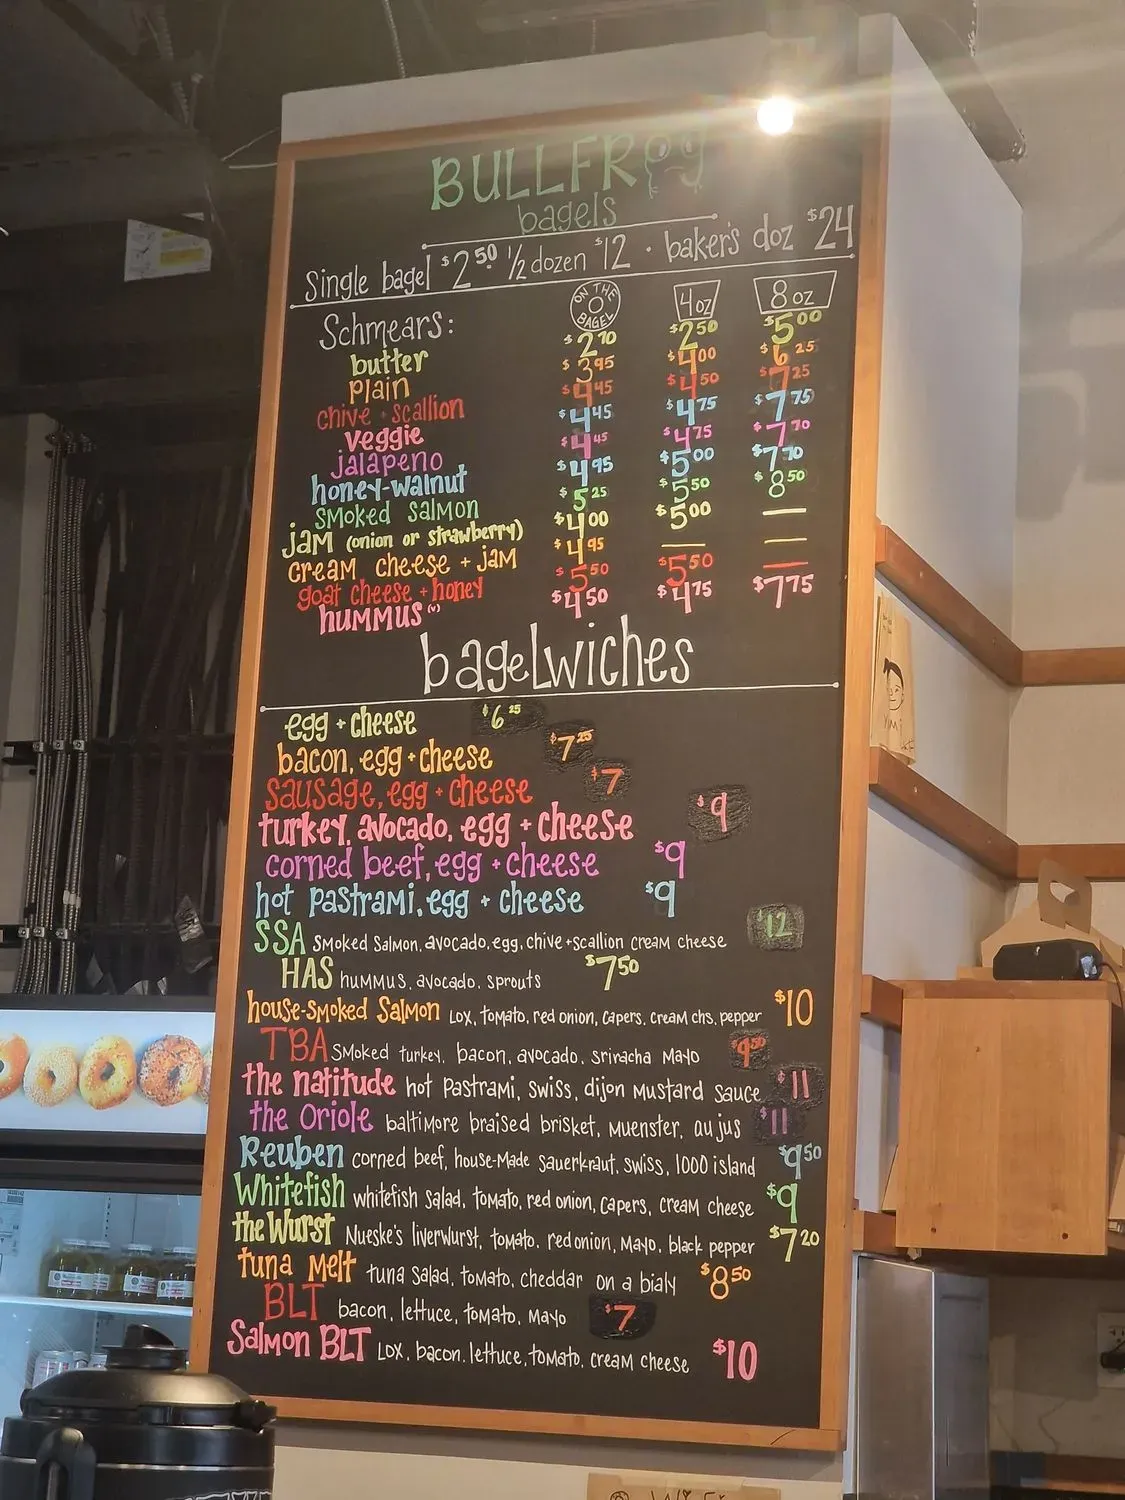 BULLFROg
bagels
Single bagel $2.50 1/2 dozen $12 · baker's doz $24
Schmears: ON THE BAGEL 4oz 8oz
butter $2.70 $2.50 $5.00
plain $3.95 $4.00 $6.25
chive + scallion $4.45 $4.50 $7.25
veggie $4.45 $4.75 $7.75
jalapeno $4.45 $4.75 $7.70
honey-walnut $4.95 $5.00 $7.70
smoked salmon $5.25 $5.50 $8.50
jam (onion or strawberry) $4.00 $5.00 —
cream cheese + jam $4.95 — —
goat cheese + honey $5.50 $5.50 —
hummus (v) $4.50 $4.75 $7.75
bagelwiches
egg + cheese $6.25
bacon, egg + cheese $7.25
sausage, egg + cheese $7
turkey, avocado, egg + cheese $9
corned beef, egg + cheese $9
hot pastrami, egg + cheese $9
SSA smoked salmon, avocado, egg, chive + scallion cream cheese $12
HAS hummus, avocado, sprouts $7.50
house-smoked salmon lox, tomato, red onion, capers, cream chs, pepper $10
TBA smoked turkey, bacon, avocado, sriracha mayo $9.50
the natitude hot pastrami, swiss, dijon mustard sauce $11
the Oriole baltimore braised brisket, muenster, au jus $11
Reuben corned beef, house-made sauerkraut, swiss, 1000 island $9.50
Whitefish whitefish salad, tomato, red onion, capers, cream cheese $9
the Wurst Nueske's liverwurst, tomato, red onion, mayo, black pepper $7.20
tuna melt tuna salad, tomato, cheddar on a bialy $8.50
BLT bacon, lettuce, tomato, mayo $7
Salmon BLT lox, bacon, lettuce, tomato, cream cheese $10